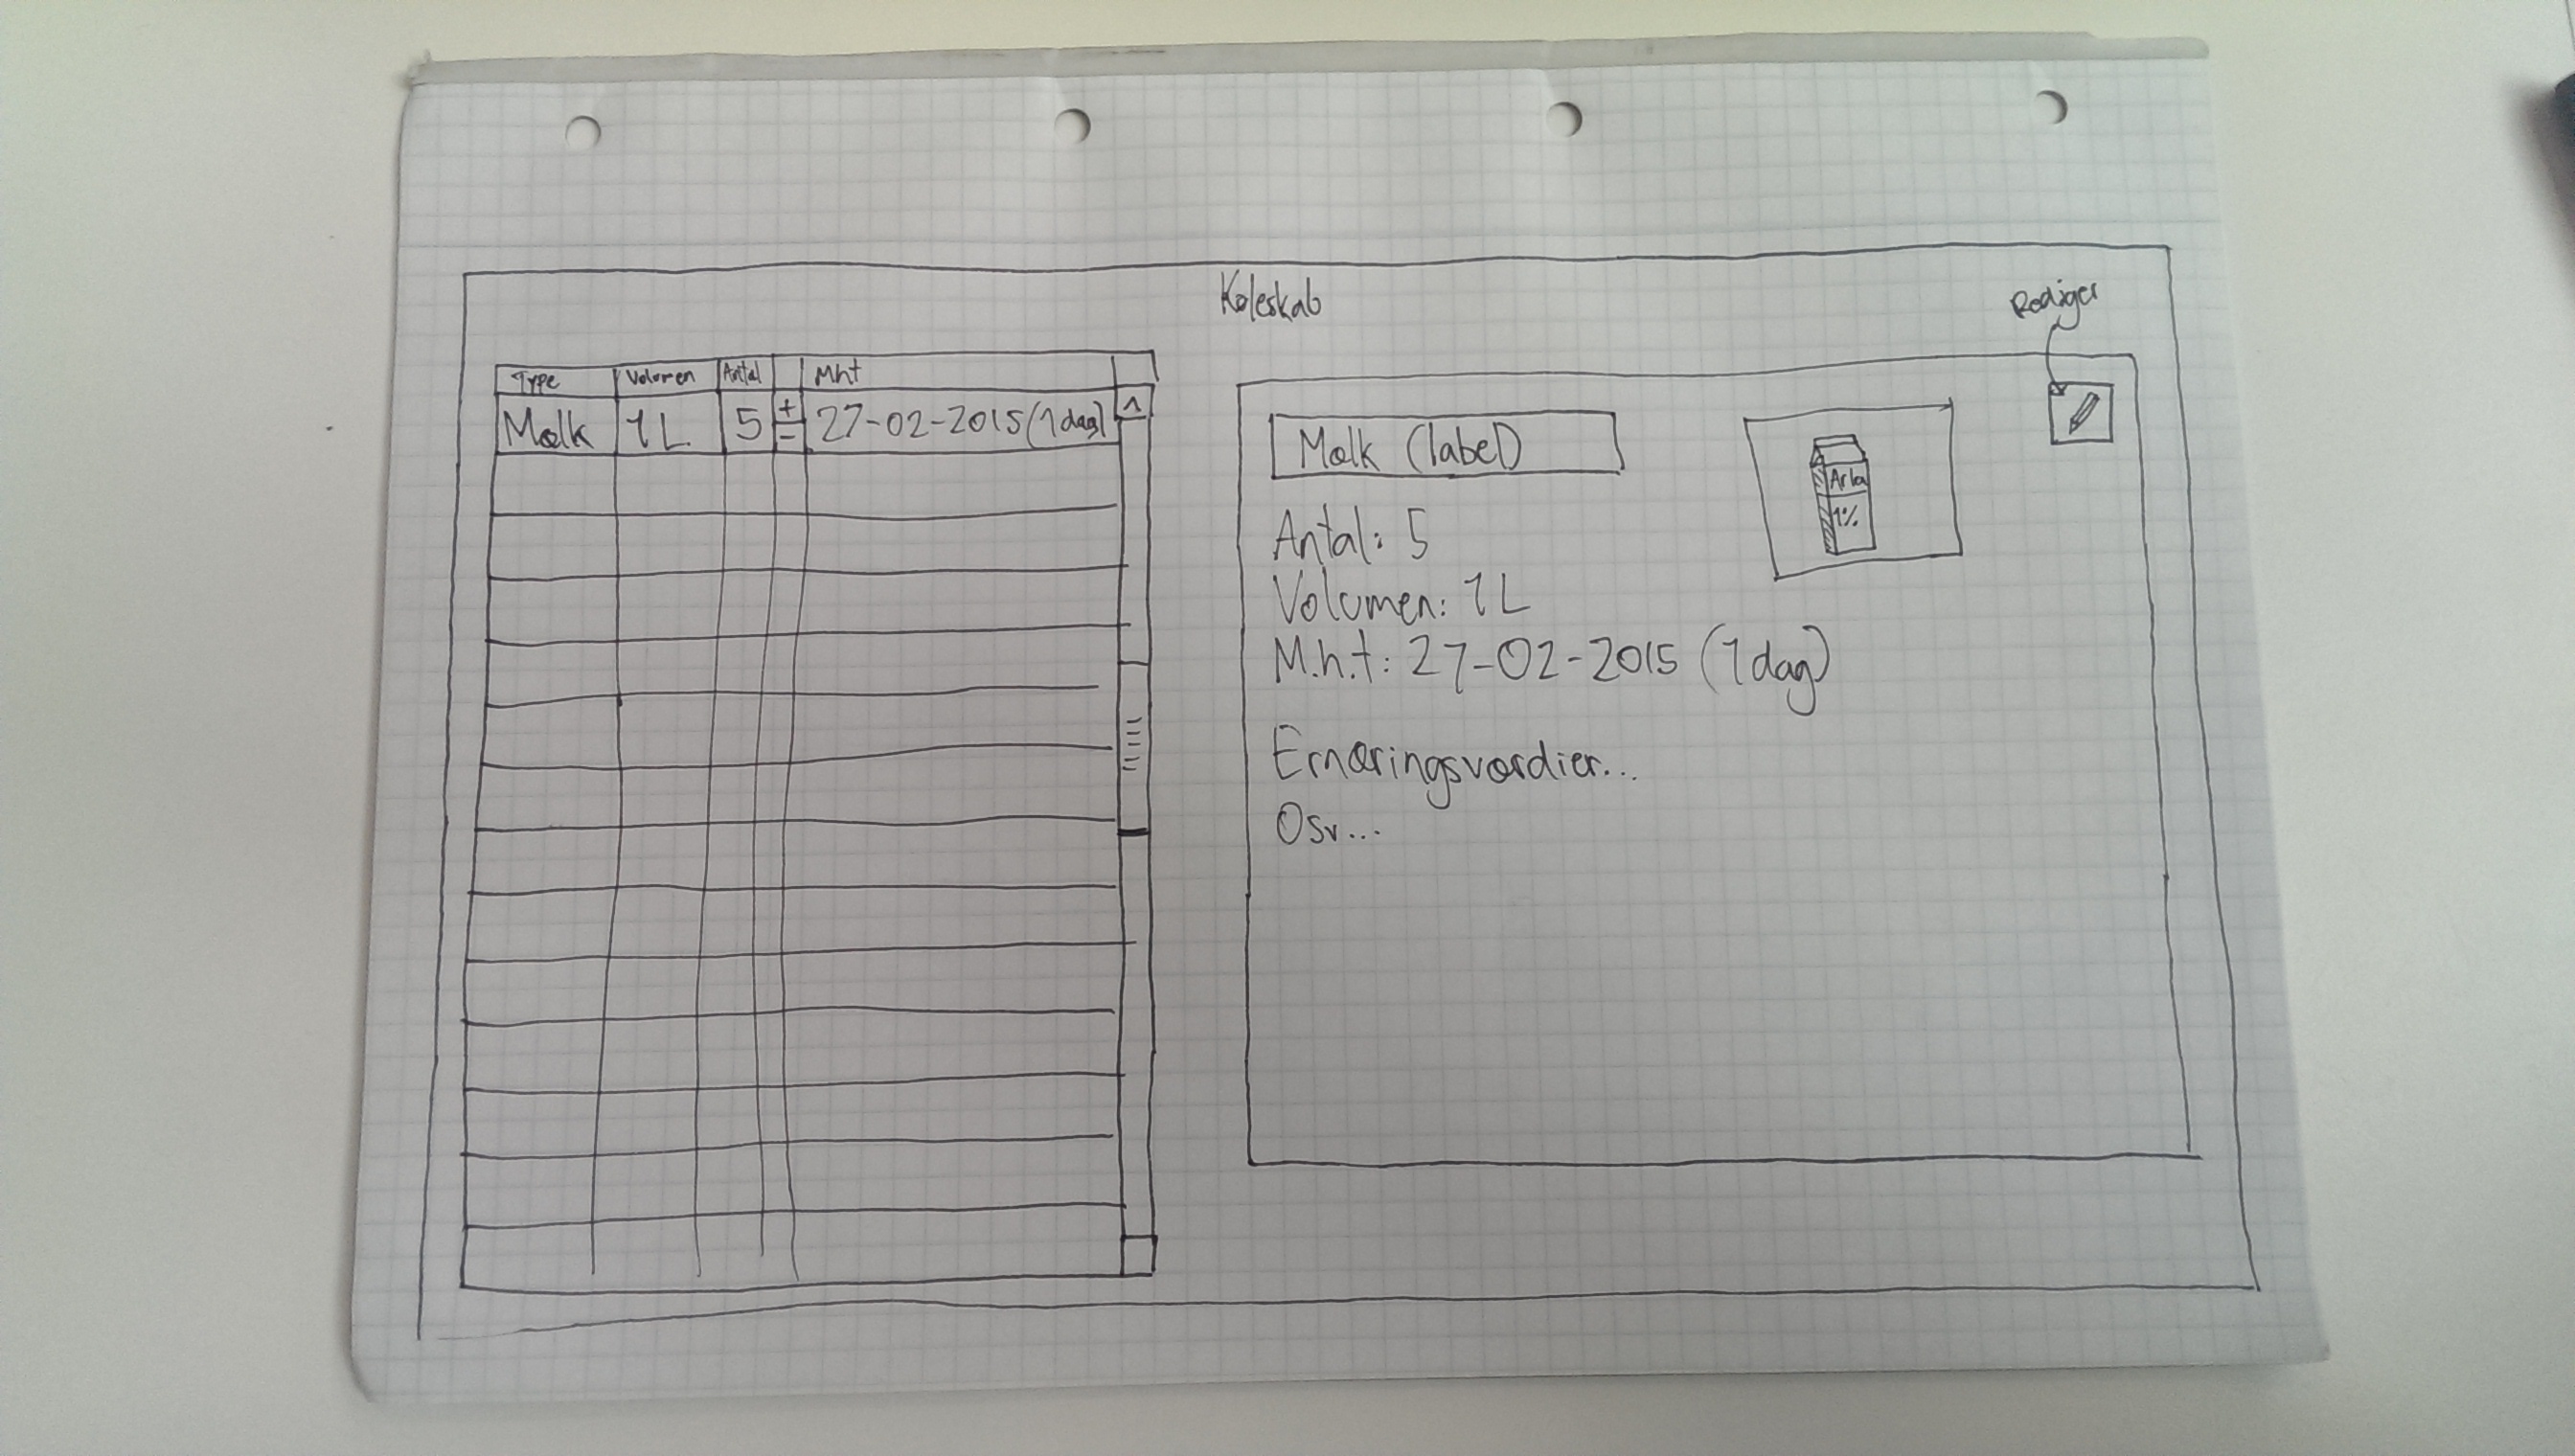 Køleskab
Rediger
Type Volumen Antal Mht
Mælk 1L 5 + - 27-02-2015 (1 dag) ^
Mælk (label)
Arla
1%
Antal: 5
Volumen: 1L
M.h.t: 27-02-2015 (1 dag)
Ernæringsværdier...
Osv...